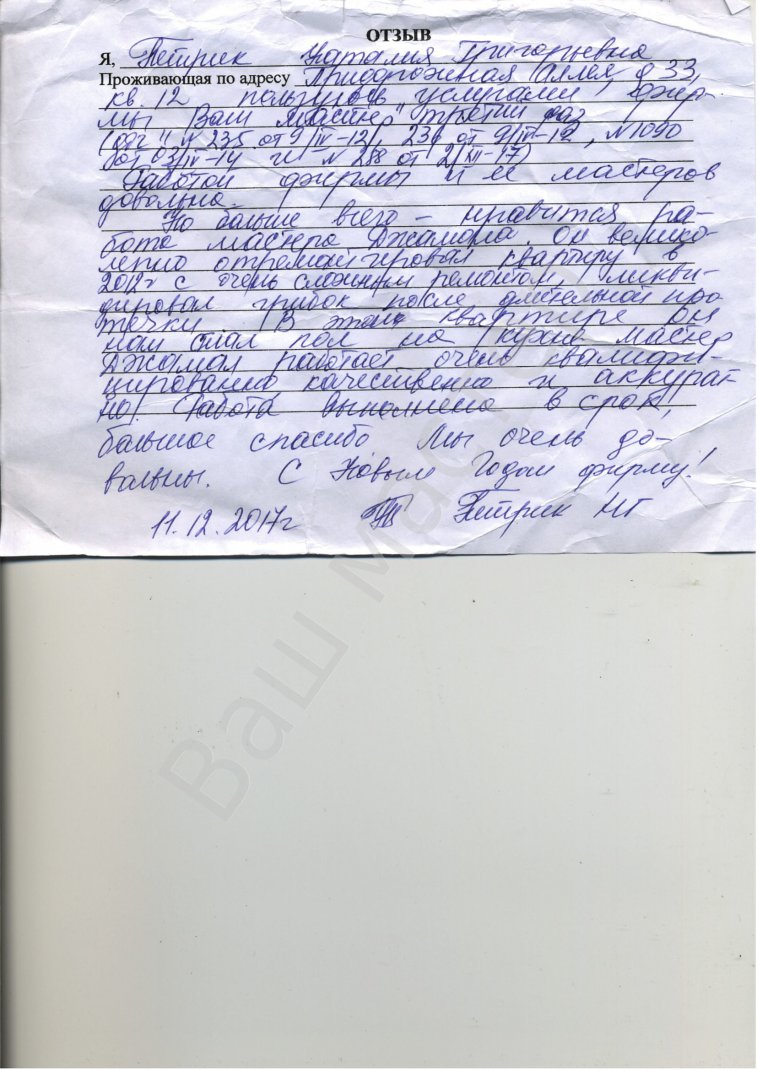 ОТЗЫВ
Я, Петрик Наталия Григорьевна
Проживающая по адресу Придорожная Аллея, д 33,
кв. 12 пользуюсь услугами фир-
мы "Ваш Мастер" третий раз
(дог. № 235 от 9/IV-12, 236 от 9/IV-12, №1090
от 03/IV-14 и № 258 от 2/XII-17)
Работой фирмы и ее мастеров
довольна.
Но больше всего – нравится ра-
бота мастера Джамала. Он велико-
лепно отремонтировал квартиру в
2012г с очень сложным ремонтом, ликви-
дировал грибок после длительной про-
течки. В этой квартире он
нам стлал пол на кухне. Мастер
Джамал работает очень квалифи-
цированно качественно и аккурат-
но. Работа выполнена в срок,
большое спасибо Мы очень до-
вольны. С Новым Годом фирму!
11.12.2017г Петрик НГ
Ваш Мастер